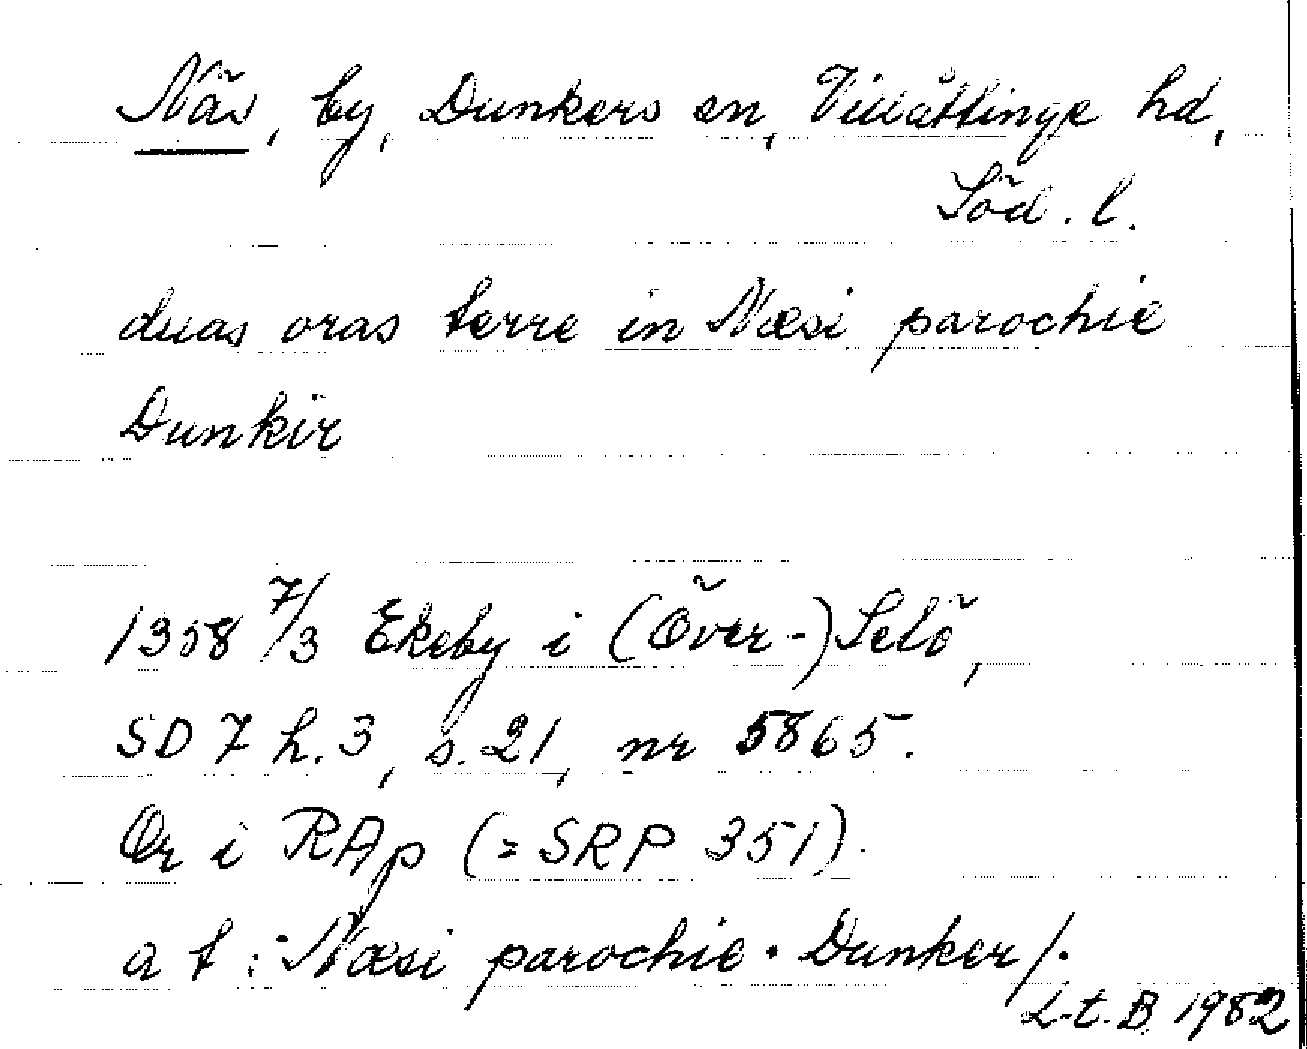 Näs, by, Dunkers sn, Villåttinge hd,
Söd. l.
duas oras terre in Næsi parochie
Dunkir
1358 7/3 Ekeby i (Över-)Selö,
SD 7 h. 3, s. 21, nr 5865.
Or i RAp (= SRP 351).
a t : Næsi parochie · Dunker/.
L-t. B. 1982